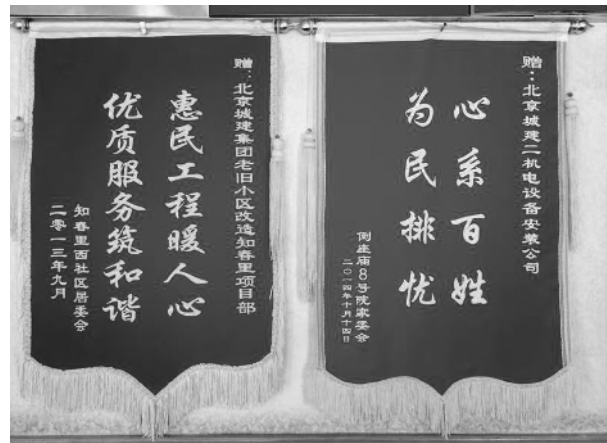 赠：北京城建集团老旧小区改造知春里项目部
惠民工程暖人心
优质服务筑和谐
知春里西社区居委会
二零一三年九月
赠：北京城建二机电设备安装公司
心系百姓
为民排忧
倒座庙8号院家委会
二〇一四年十月十四日